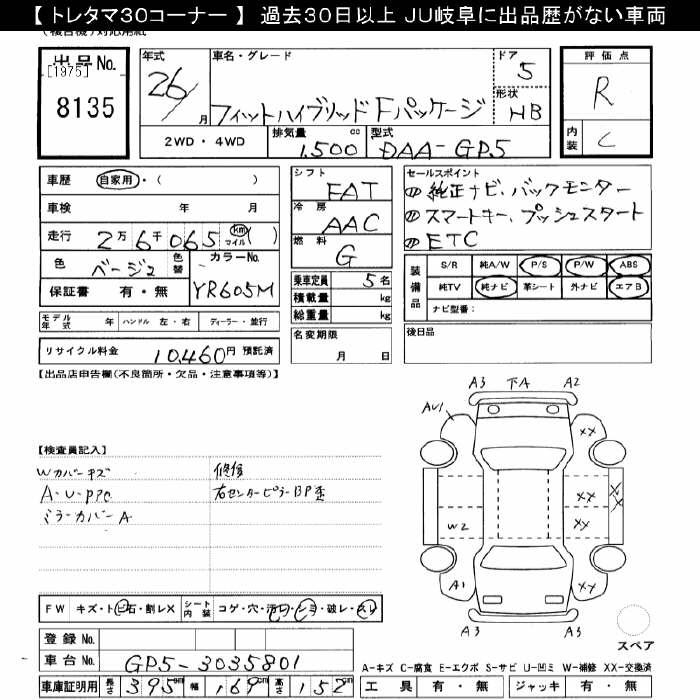 【 トレタマ30コーナー 】 過去30日以上 JU岐阜に出品歴がない車両
出品No.
[1975]
8135
年式 26/ 月
車名・グレード
フィットハイブリッド Fパッケージ
ドア 5
形状 HB
評価点
R
内装 C
2WD ・ 4WD
排気量 1,500 cc
型式 DAA-GP5
車歴 自家用 ・ ( )
車検 年 月
走行 2万6千065 km マイル ( )
色 ベージュ 色替 カラーNo.
保証書 有 ・ 無 YR605M
モデル年式 年 ハンドル 左 ・右 ディーラー・並行
リサイクル料金 10,460円 預託済
シフト FAT
冷房 AAC
燃料 G
乗車定員 5 名
積載量 kg
総重量 kg
名変期限
月 日
セールスポイント
純正ナビ、バックモンター
スマートキー、プッシュスタート
ETC
装備品
S/R 純A/W P/S P/W ABS
純TV 純ナビ 革シート 外ナビ エアB
ナビ型番：
後日品
【出品店申告欄(不良箇所・欠品・注意事項等)】
【検査員記入】
Wカバーキズ 修復
A・U・PPC 右センターピラーBP歪
ミラーカバーA
A3 下A A2
AU1
XX
XX
XX
W2 XY
A1 XX
A3 A3
スペア
FW キズ・トビ石・割レX シート内装 コゲ・穴・汚レ・シミ・破レ・スレ
登録No.
車台No. GP5-3035801
車庫証明用 長さ 395cm 幅 169cm 高さ 152cm
A-キズ C-腐食 E-エクボ S-サビ U-凹ミ W-補修 XX-交換済
工具 有 ・ 無 ジャッキ 有 ・ 無